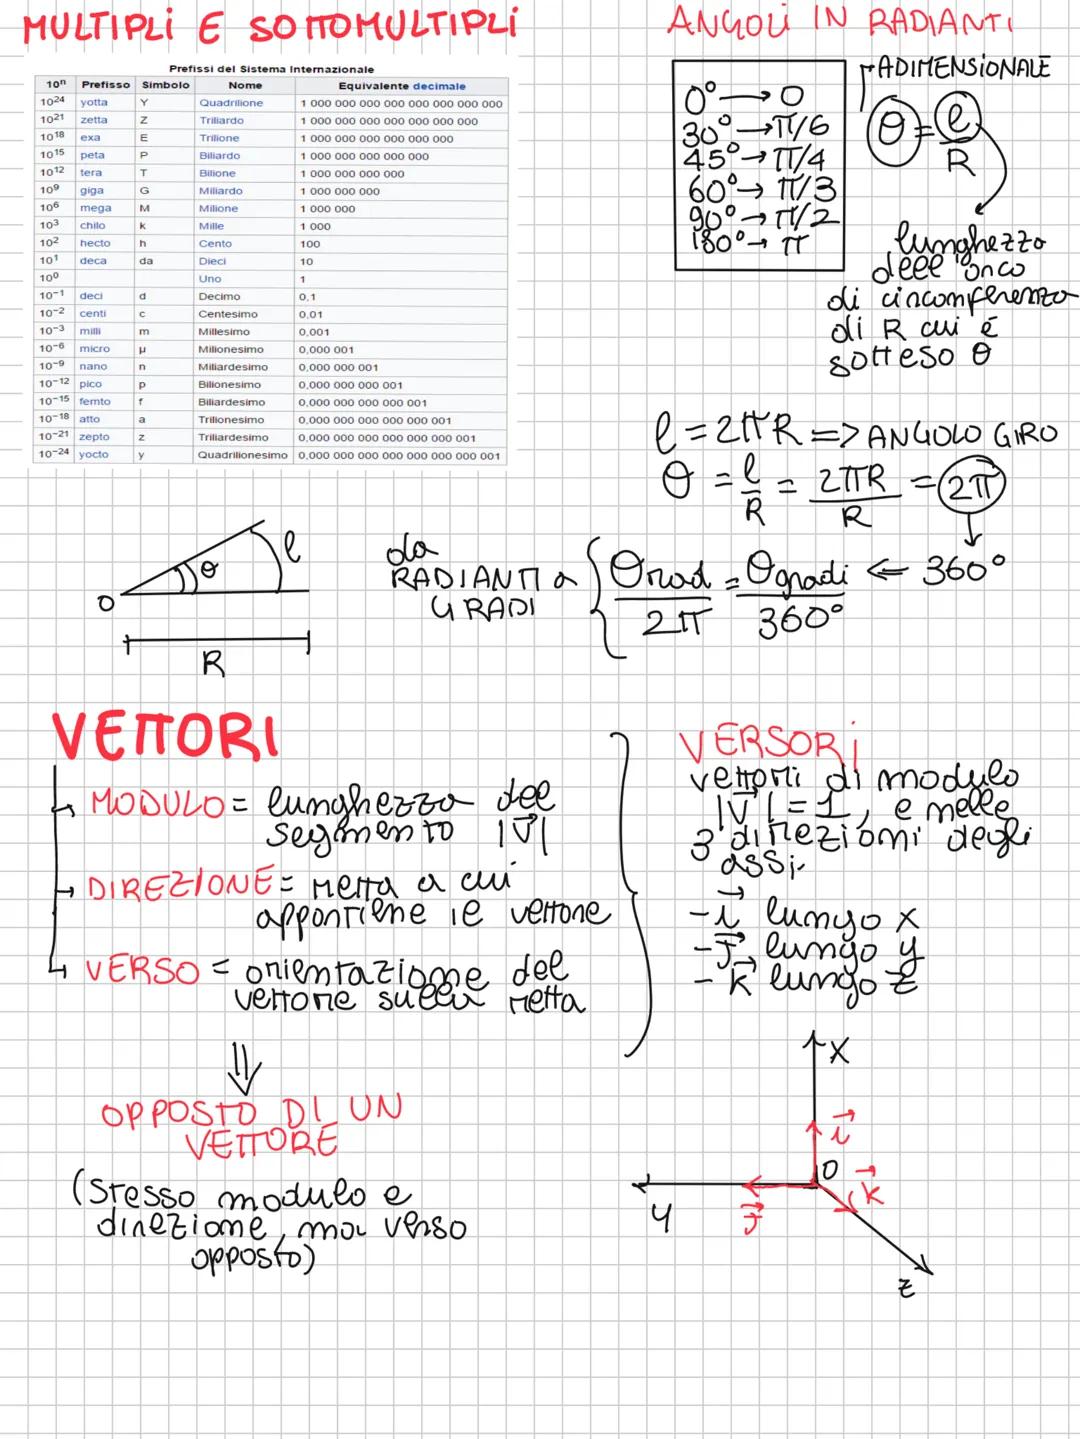 MULTIPLI E SOTTOMULTIPLI
Prefissi del Sistema Internazionale
10ⁿ Prefisso Simbolo Nome Equivalente decimale
10²⁴ yotta Y Quadrilione 1 000 000 000 000 000 000 000 000
10²¹ zetta Z Triliardo 1 000 000 000 000 000 000 000
10¹⁸ exa E Trilione 1 000 000 000 000 000 000
10¹⁵ peta P Biliardo 1 000 000 000 000 000
10¹² tera T Bilione 1 000 000 000 000
10⁹ giga G Miliardo 1 000 000 000
10⁶ mega M Milione 1 000 000
10³ chilo k Mille 1 000
10² hecto h Cento 100
10¹ deca da Dieci 10
10⁰ Uno 1
10⁻¹ deci d Decimo 0,1
10⁻² centi c Centesimo 0,01
10⁻³ milli m Millesimo 0,001
10⁻⁶ micro µ Milionesimo 0,000 001
10⁻⁹ nano n Miliardesimo 0,000 000 001
10⁻¹² pico p Bilionesimo 0,000 000 000 001
10⁻¹⁵ femto f Biliardesimo 0,000 000 000 000 001
10⁻¹⁸ atto a Trilionesimo 0,000 000 000 000 000 001
10⁻²¹ zepto z Triliardesimo 0,000 000 000 000 000 000 001
10⁻²⁴ yocto y Quadrilionesimo 0,000 000 000 000 000 000 000 001
ANGOLI IN RADIANTI
0° → 0
30° → π/6
45° → π/4
60° → π/3
90° → π/2
180° → π
ADIMENSIONALE
θ = ℓ/R
lunghezza
dell'arco
di circonferenza
di R cui è
sotteso θ
ℓ = 2πR => ANGOLO GIRO
θ = ℓ/R = 2πR/R = 2π
θ ℓ
O
R
da
RADIANTI a
GRADI
θrad/2π = θgradi/360° ⇐ 360°
VETTORI
MODULO = lunghezza del
segmento |V⃗|
DIREZIONE = retta a cui
appartiene il vettore
VERSO = orientazione del
vettore sulla retta
⇓
OPPOSTO DI UN
VETTORE
(stesso modulo e
direzione, ma verso
opposto)
VERSORI
vettori di modulo
|V⃗| = 1, e nelle
3 direzioni degli
assi.
- i⃗ lungo x
- J⃗ lungo y
- k⃗ lungo z
X
i⃗
O
k⃗
y
J⃗
z